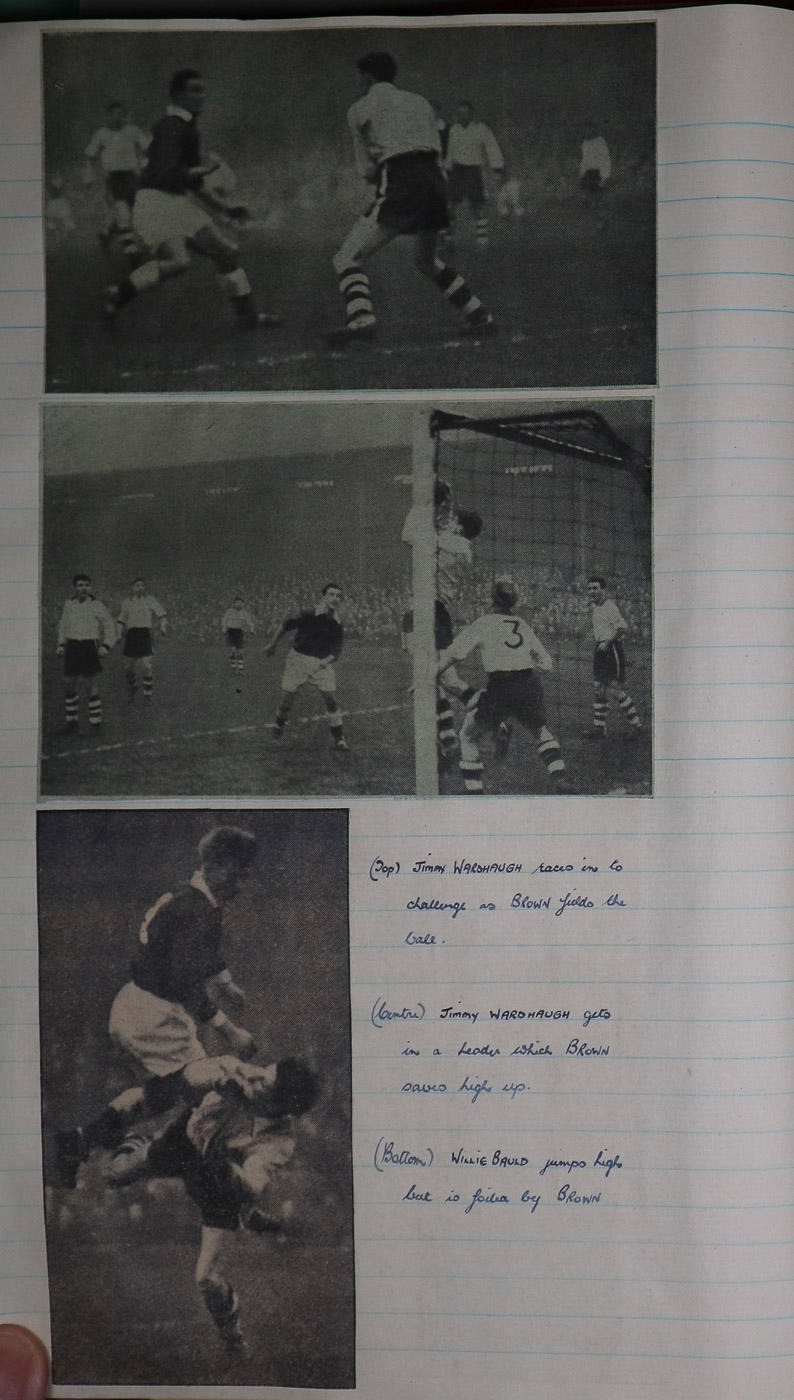 3
(Top) Jimmy WARDHAUGH races in to
challenge as BROWN fields the
ball.
(Centre) Jimmy WARDHAUGH gets
in a header which BROWN
saves high up.
(Bottom) WILLIE BAULD jumps high
but is foiled by BROWN